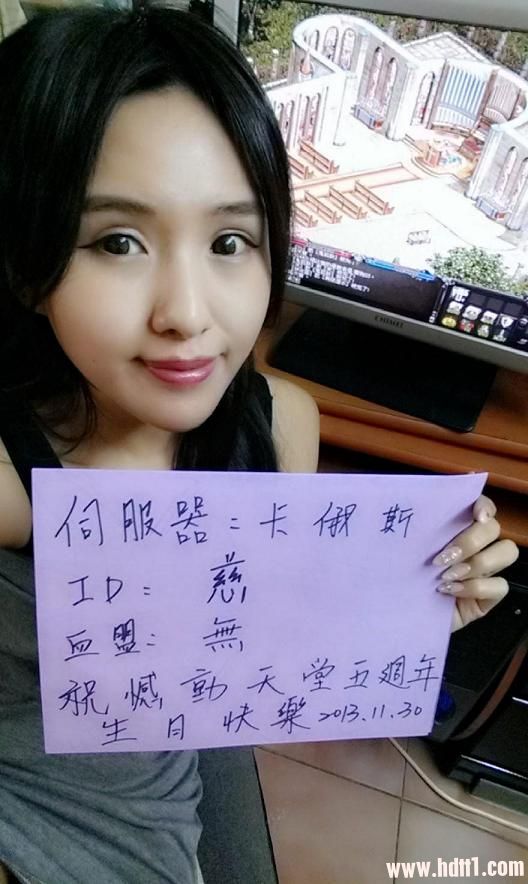 CHIMEI
伺服器：卡俄斯
ID： 慈
血盟： 無
祝憾動天堂五週年
生日快樂 2013.11.30
www.hdtt1.com